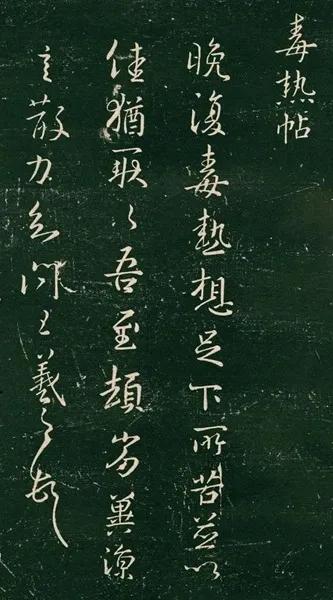 毒熱帖
晚復毒熱想足下所苦並以
佳猶耿々吾至頓劣冀涼
言散力知問王羲之頓首